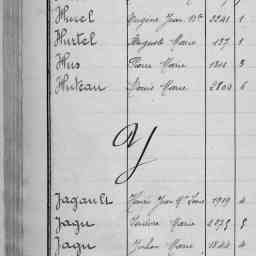 Hurel Eugène Jean Bte 3241 1
Hurtel Auguste Marie 157 1
Hus Pierre Marie 3
Huteau Louis Marie 2804 6
J
Jagault Jean Louis 1919 4
Jagu Marie 2075 5
Jagu Julien Marie 1844 4